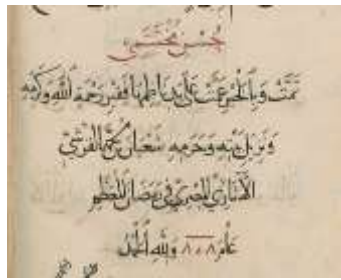 تمت وبالخير عمت على يد ناظمها فقير رحمة الله وكرمه
ونزيل بيته وحرمه شعبان بن محمد القرشي
الآثاري المصري في رمضان المعظم
عام ٨٠٨ ولله الحمد